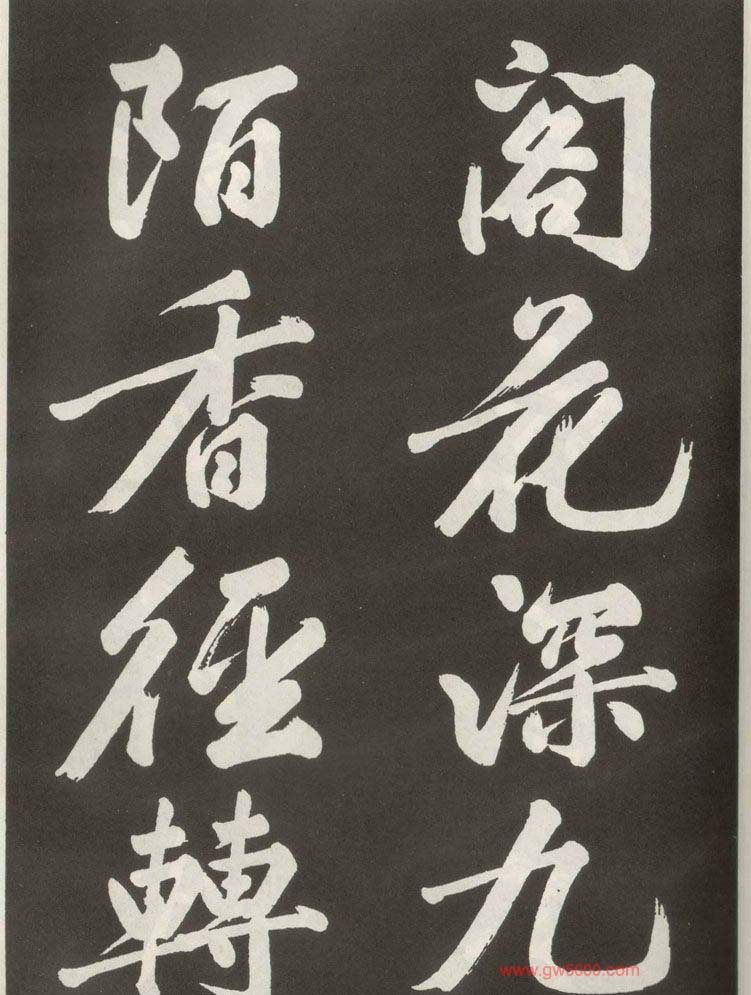 阁花深九
陌香徑轉
www.gw5000.com